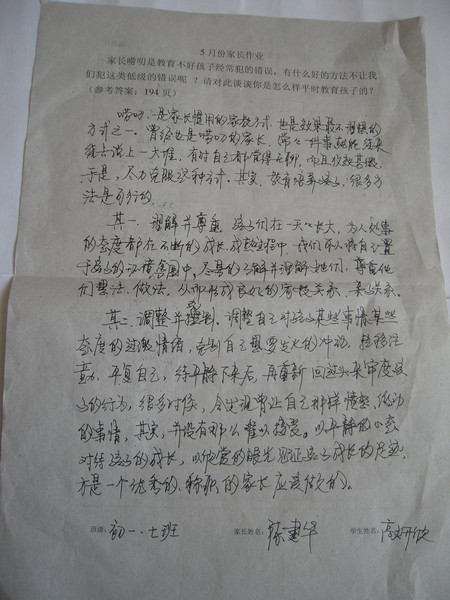 5月份家长作业
家长唠叨是教育不好孩子经常犯的错误,有什么好的方法不让我
们犯这类低级的错误呢?请对此谈谈你是怎么样平时教育孩子的?
(参考答案:194页)
唠叨,是家长惯用的家教方式,也是效果最不理想的
方式之一。曾经也是唠叨的家长,常々一件事翻能
去说上一大堆,有时自己都觉得无聊,而且收效甚微,
于是,尽力克服这种方式。其实,教育培养孩子,很多方
法是可行的。
其一,理解并尊重。孩子们在一天々长大,为人处事
的态度都在不断的成长,成熟过程中,我们家长将自己置
于孩子的氛围中,尽量的了解并理解她们,尊重他
们想法、做法。从而形成良好的家校关系、亲子关系。
其二,调整并控制。调整自己对孩子某些事情某些
态度的过激情绪,控制自己想要发火的冲动,转移注
意力,平复自己,待平静下来后,再重新回过头来审度孩
子的行为,很多时候,会发现曾让自己那样愤怒、激动
的事情,其实,并没有那么难以接受。以平静的心态
对待孩子的成长,以欣赏的眼光见证孩子成长的足迹,
才是一个优秀的、称职的家长应该做的。
班级:初一·七班 家长姓名:陈建华 学生姓名:高妍欣